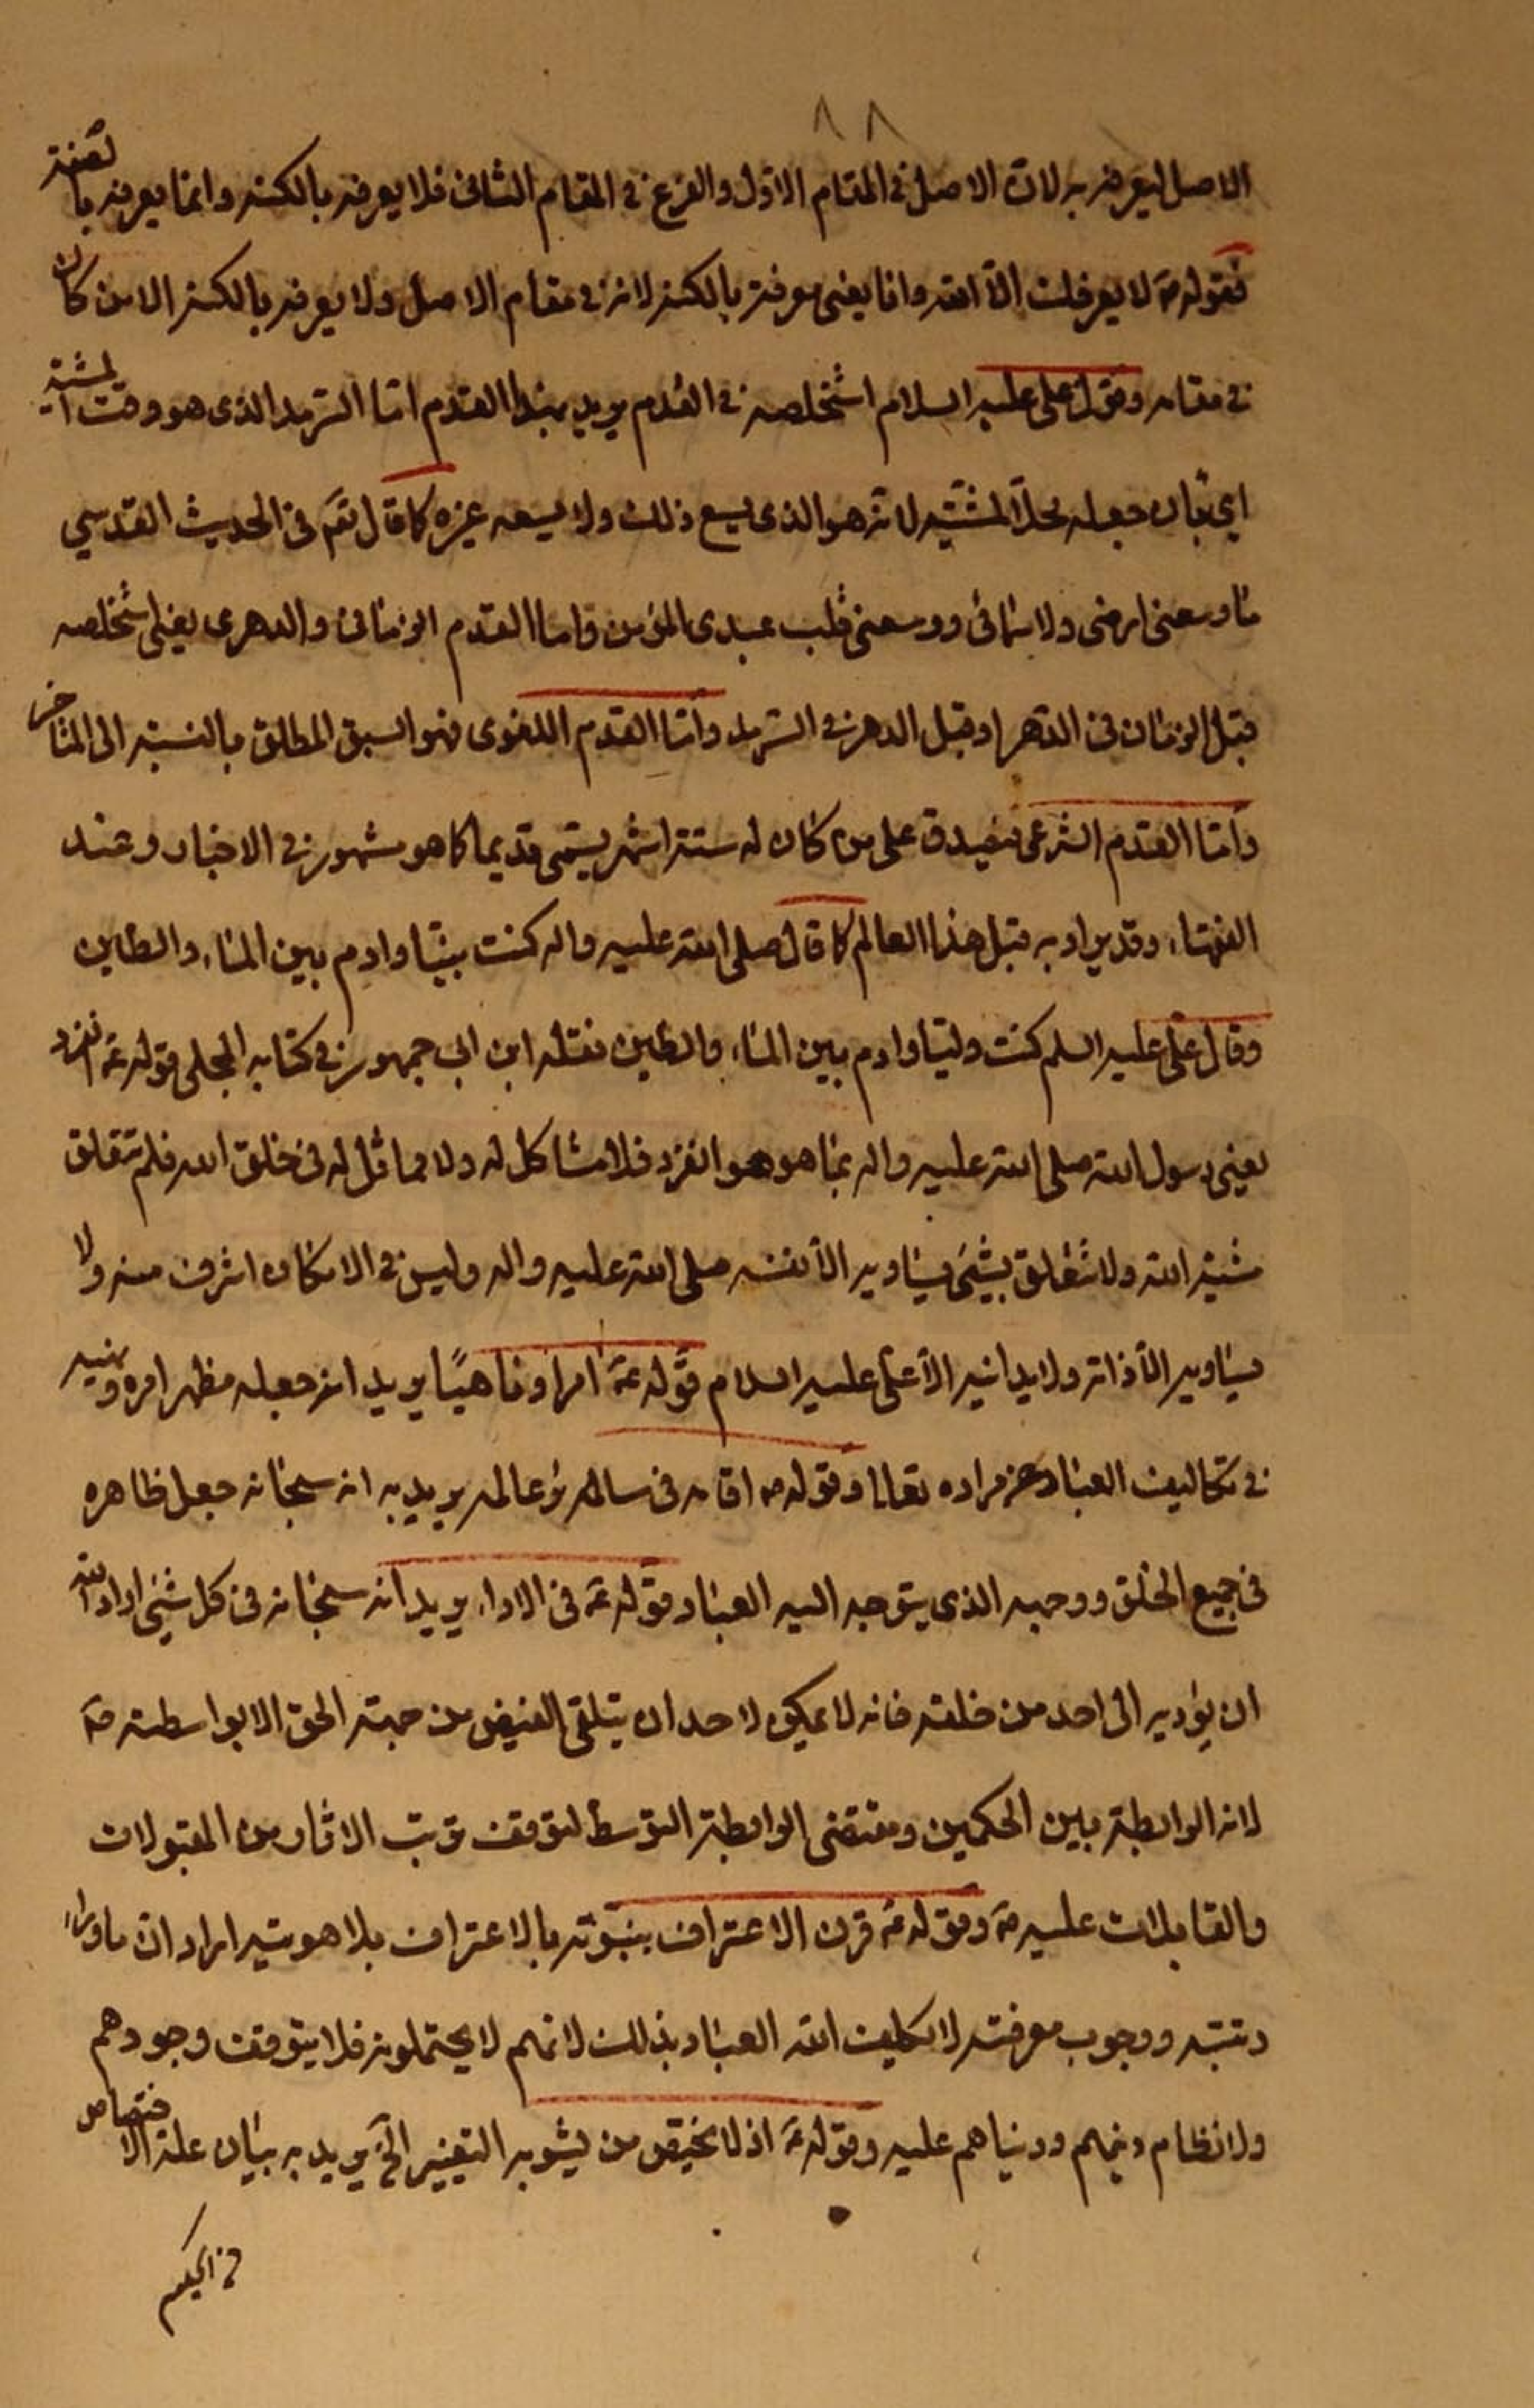 ٨٨
الاصل ليعرفه به لان الاصل في المقام الاول والفرع في المقام الثانى فلا يعرفه بالكنه وانما يعرفه بالصفة
فقوله ص لا يعرفك الا الله وانا يعنى معرفته بالكنه لانه في مقام الاصل ولا يعرفه بالكنه الا من كان
في مقامه وقول على عليه السلام استخلصه في القدم يريد بهذا القدم اما السرمد الذى هو وقت المشية
اي بان جعله محلا لمشيته لانه هو الذى يسع ذلك ولا يسعه غيره كما قال تعم في الحديث القدسي
ما وسعنى ارضى ولا سمائى ووسعنى قلب عبدى المؤمن واما القدم الزمانى والدهرى يعنى استخلصه
قبل الزمان في الدهر او قبل الدهر في السرمد واما القدم اللغوى فهو السبق المطلق بالنسبة الى المتاخر
واما القدم الشرعى فيصدق على من كان له ستة اشهر يسمى قديما كما هو مشهور في الاخبار وعند
الفقهاء وقد يراد به قبل هذا العالم كما قال صلى الله عليه واله كنت نبيّا وادم بين الماء والطين
وقال على عليه السلم كنت وليّا وادم بين الماء والطين نقله ابن ابى جمهور في كتابه المجلى قوله ع انفرد
يعنى رسول الله صلى الله عليه واله بما هو هو انفرد فلا مشاكل له ولا مماثل له في خلق الله فلم تتعلق
مشية الله ولا تتعلق بشىء يساويه الا نفسه صلى الله عليه واله وليس في الامكان اشرف منه ولا
يساويه الا ذاته ولا يدانيه الا على عليه السلام قوله ع امرا وناهيًا يريد انه جعله مظهر امره ونهيه
في تكاليف العباد عن مراده تعالى وقوله ع اقامه في سائر عالمه يريد به انه سبحانه جعل ظاهره
في جميع الخلق ووجهه الذى يتوجه اليه العباد وقوله ع في الاداء يريد انه سبحانه في كل شئ اراد الله
ان يؤديه الى احد من خلقه فانه لا يمكن لاحد ان يتلقى الفيض من جهة الحق الا بواسطته ص
لانه الواسطة بين الحكمين ومقتضى الواسطة التوسط لتوقف ترتب الاثار من المقبولات
والقابلات عليه ص وقوله ع قرن الاعتراف بنبوته بالاعتراف بلاهوتيه اراد ان ما وراء
رتبته ووجوب معرفته لا يكلف الله العباد بذلك لانهم لا يحتملونه فلا يتوقف وجودهم
ولا نظام دينهم ودنياهم عليه وقوله ع اذ لا يختص من يشوبه التغيير الخ يريد به بيان علة الاختصاص